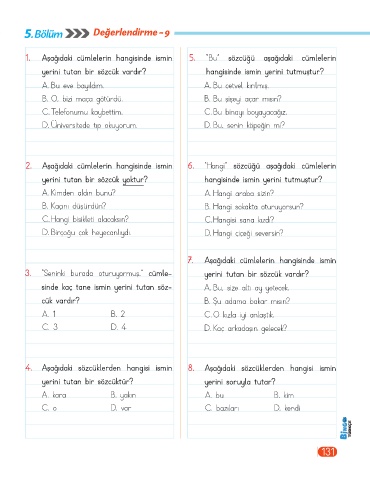 5.Bölüm Değerlendirme - 9
1. Aşağıdaki cümlelerin hangisinde ismin
yerini tutan bir sözcük vardır?
A. Bu eve bayıldım.
B. O, bizi maça götürdü.
C. Telefonumu kaybettim.
D. Üniversitede tıp okuyorum.
2. Aşağıdaki cümlelerin hangisinde ismin
yerini tutan bir sözcük yoktur?
A. Kimden aldın bunu?
B. Kaçını düşürdün?
C. Hangi bisikleti alacaksın?
D. Birçoğu çok heyecanlıydı.
3. "Seninki burada oturuyormuş." cümle-
sinde kaç tane ismin yerini tutan söz-
cük vardır?
A. 1 B. 2
C. 3 D. 4
4. Aşağıdaki sözcüklerden hangisi ismin
yerini tutan bir sözcüktür?
A. kara B. yakın
C. o D. var
5. "Bu" sözcüğü aşağıdaki cümlelerin
hangisinde ismin yerini tutmuştur?
A. Bu cetvel kırılmış.
B. Bu şişeyi açar mısın?
C. Bu binayı boyayacağız.
D. Bu, senin köpeğin mi?
6. "Hangi" sözcüğü aşağıdaki cümlelerin
hangisinde ismin yerini tutmuştur?
A. Hangi araba sizin?
B. Hangi sokakta oturuyorsun?
C. Hangisi sana kızdı?
D. Hangi çiçeği seversin?
7. Aşağıdaki cümlelerin hangisinde ismin
yerini tutan bir sözcük vardır?
A. Bu, size altı ay yetecek.
B. Şu adama bakar mısın?
C. O kızla iyi anlaştık.
D. Kaç arkadaşın gelecek?
8. Aşağıdaki sözcüklerden hangisi ismin
yerini soruyla tutar?
A. bu B. kim
C. bazıları D. kendi
131